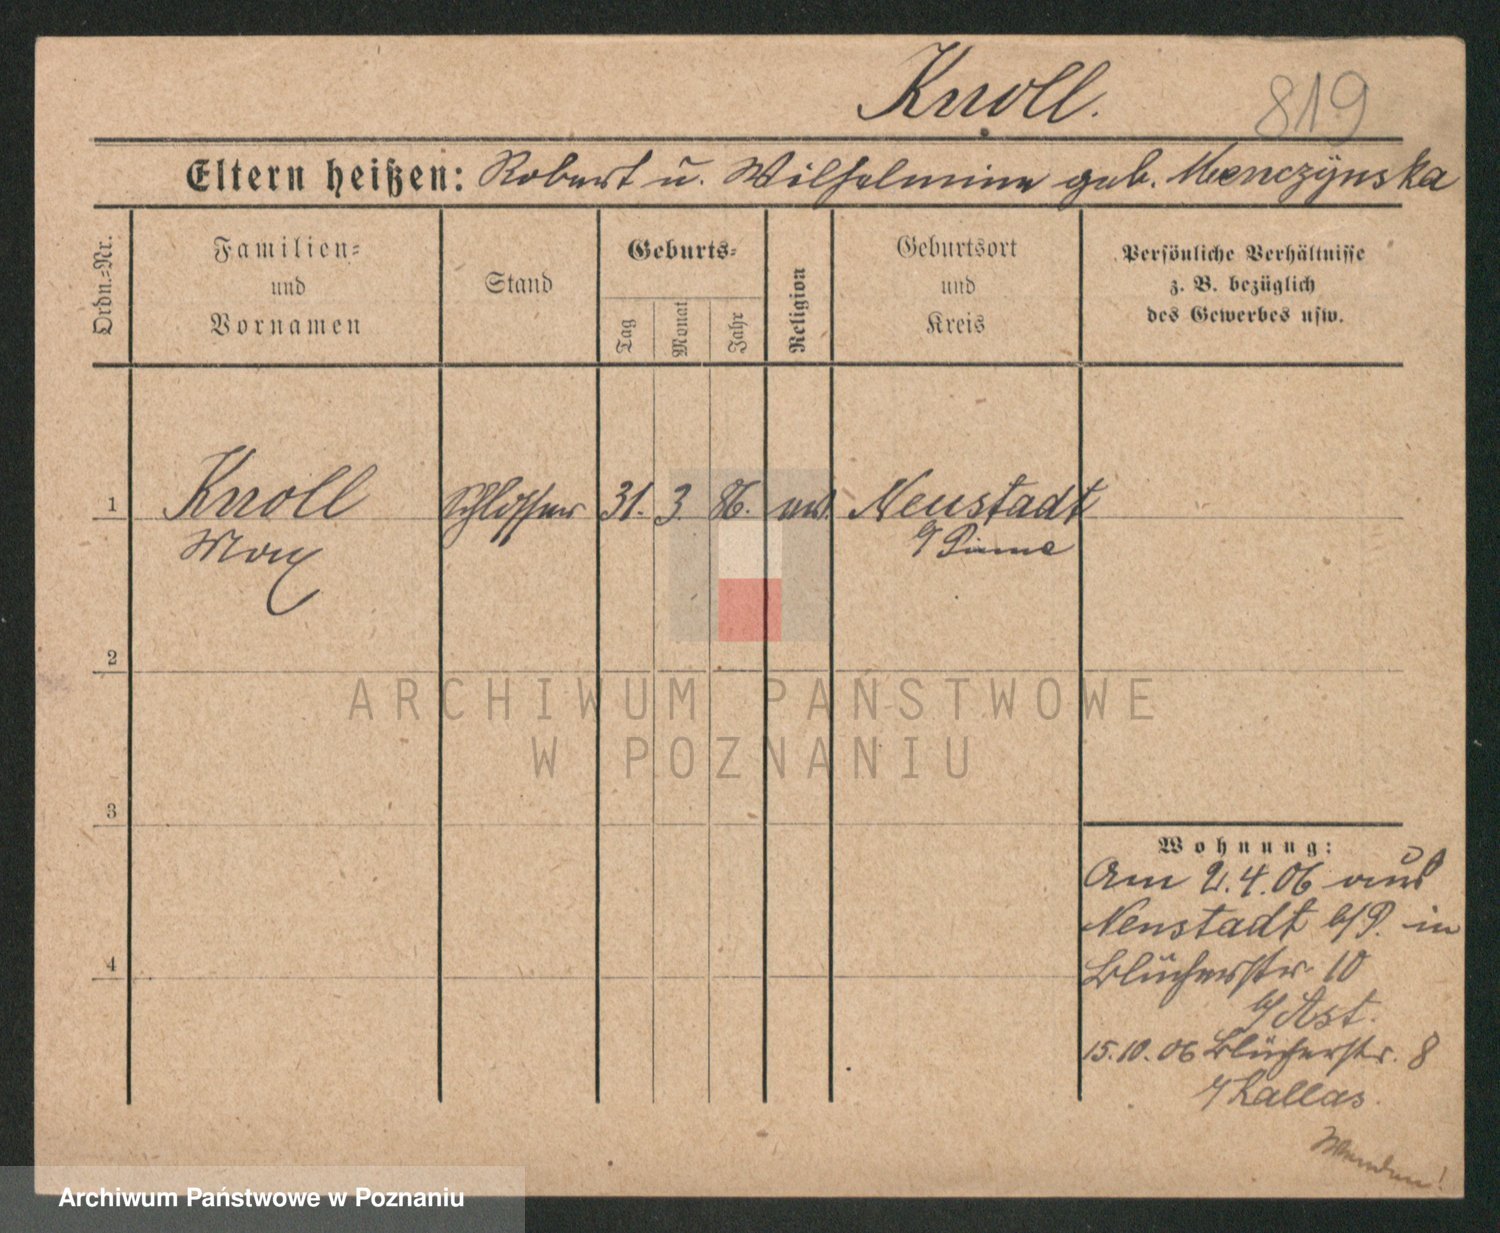 Knoll.
819
Eltern heißen: Robert u. Wilhelmine geb. Menczynska
Ordn.=Nr.
Familien=
und
Vornamen
Stand
Geburts=
Tag
Monat
Jahr
Religion
Geburtsort
und
Kreis
Persönliche Verhältnisse
z. B. bezüglich
des Gewerbes usw.
1
Knoll Schlosser 31. 3. 86. Neustadt
Max b/ Pinne
2
3
4
Wohnung:
Am 2.4.06 aus
Neustadt b/P. in
Blücherstr. 10
b/ Ast.
15.10.06 Blücherstr. 8
b/ Kallas.
Wenden!
ARCHIWUM PAŃSTWOWE
W POZNANIU
Archiwum Państwowe w Poznaniu